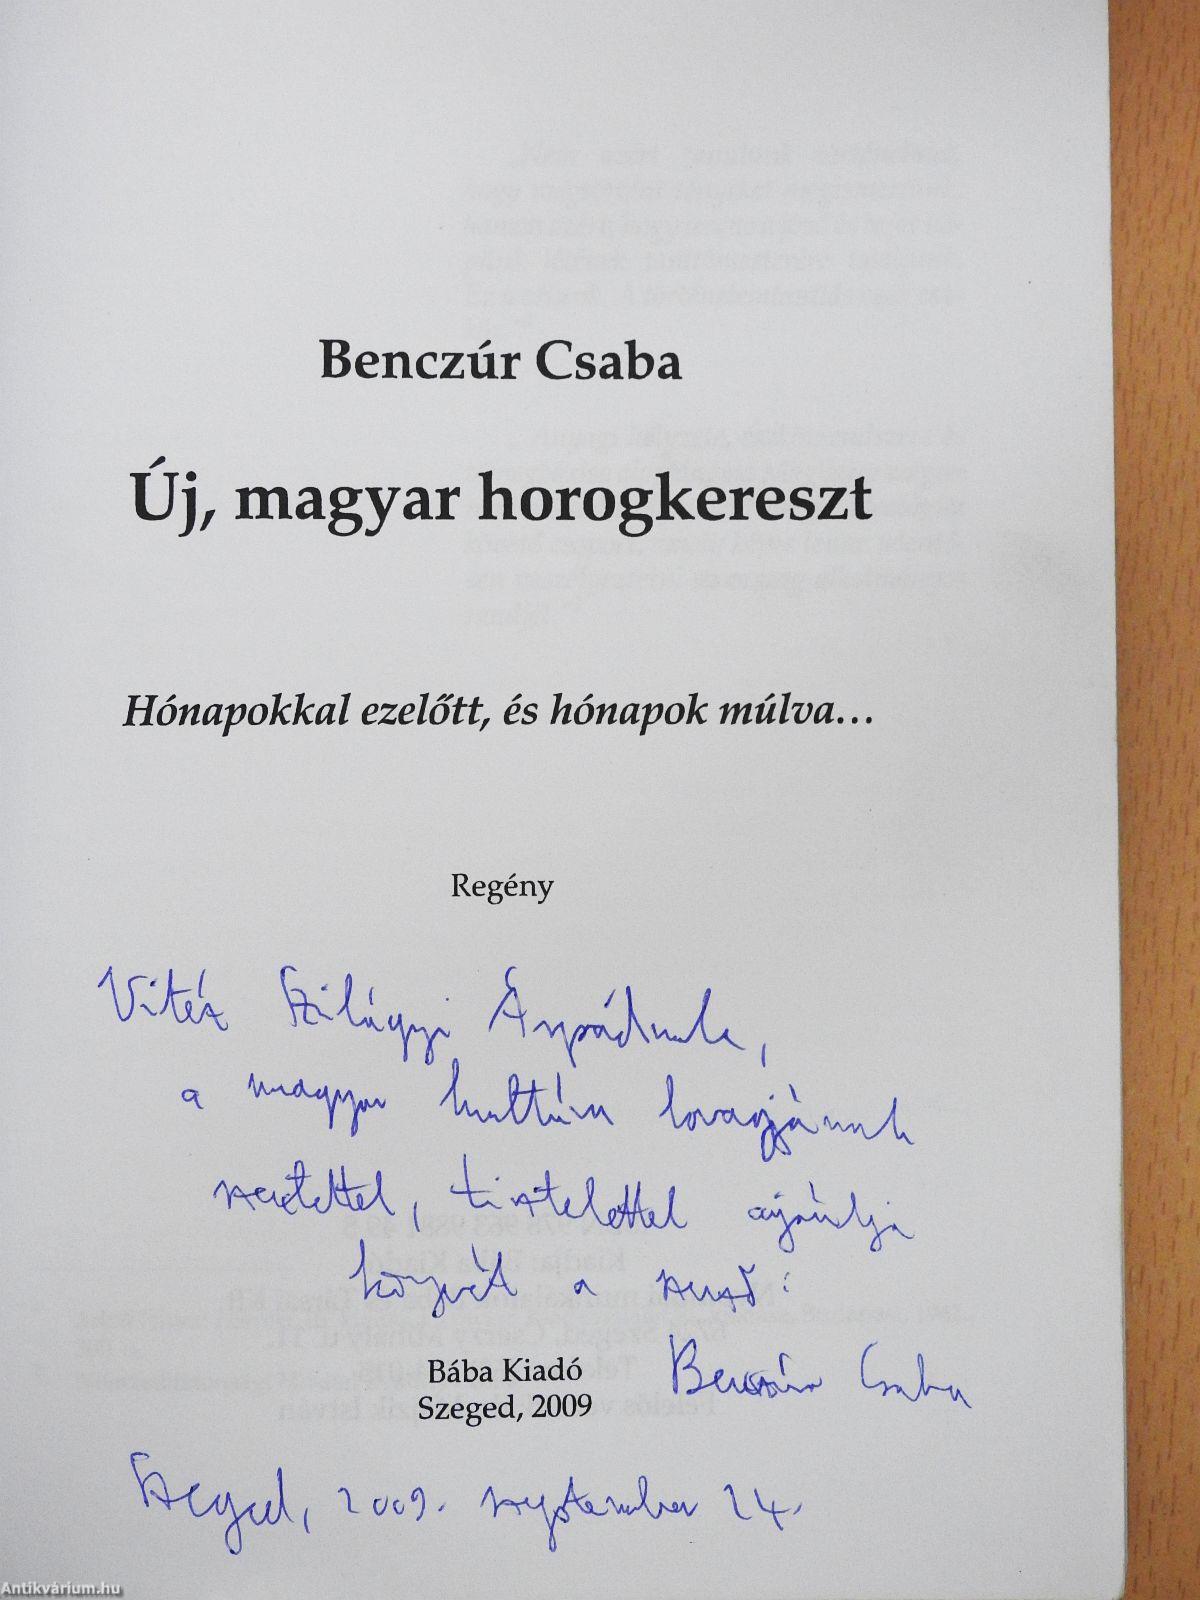 Benczúr Csaba
Új, magyar horogkereszt
Hónapokkal ezelőtt, és hónapok múlva…
Regény
Vitéz Szilágyi Árpádnak,
a magyar kultúra lovagjának
szeretettel, tisztelettel ajánlja
könyvét a szerző:
Bába Kiadó
Benczúr Csaba
Szeged, 2009
Szeged, 2009. szeptember 24.
Antikvárium.hu